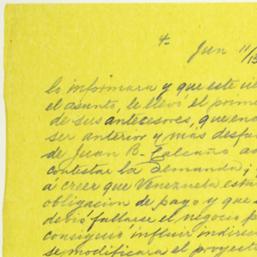 4.
Jun 11/13
lo informara y que este
el asunto, le llevó el
de sus antecesores, que
ser anterior y más
de Juan B.
contestar la demanda;
á creer que Venezuela está
obligación de pago y que
debió fallarse el negocio
consiguió influir
se modificara el proyecto